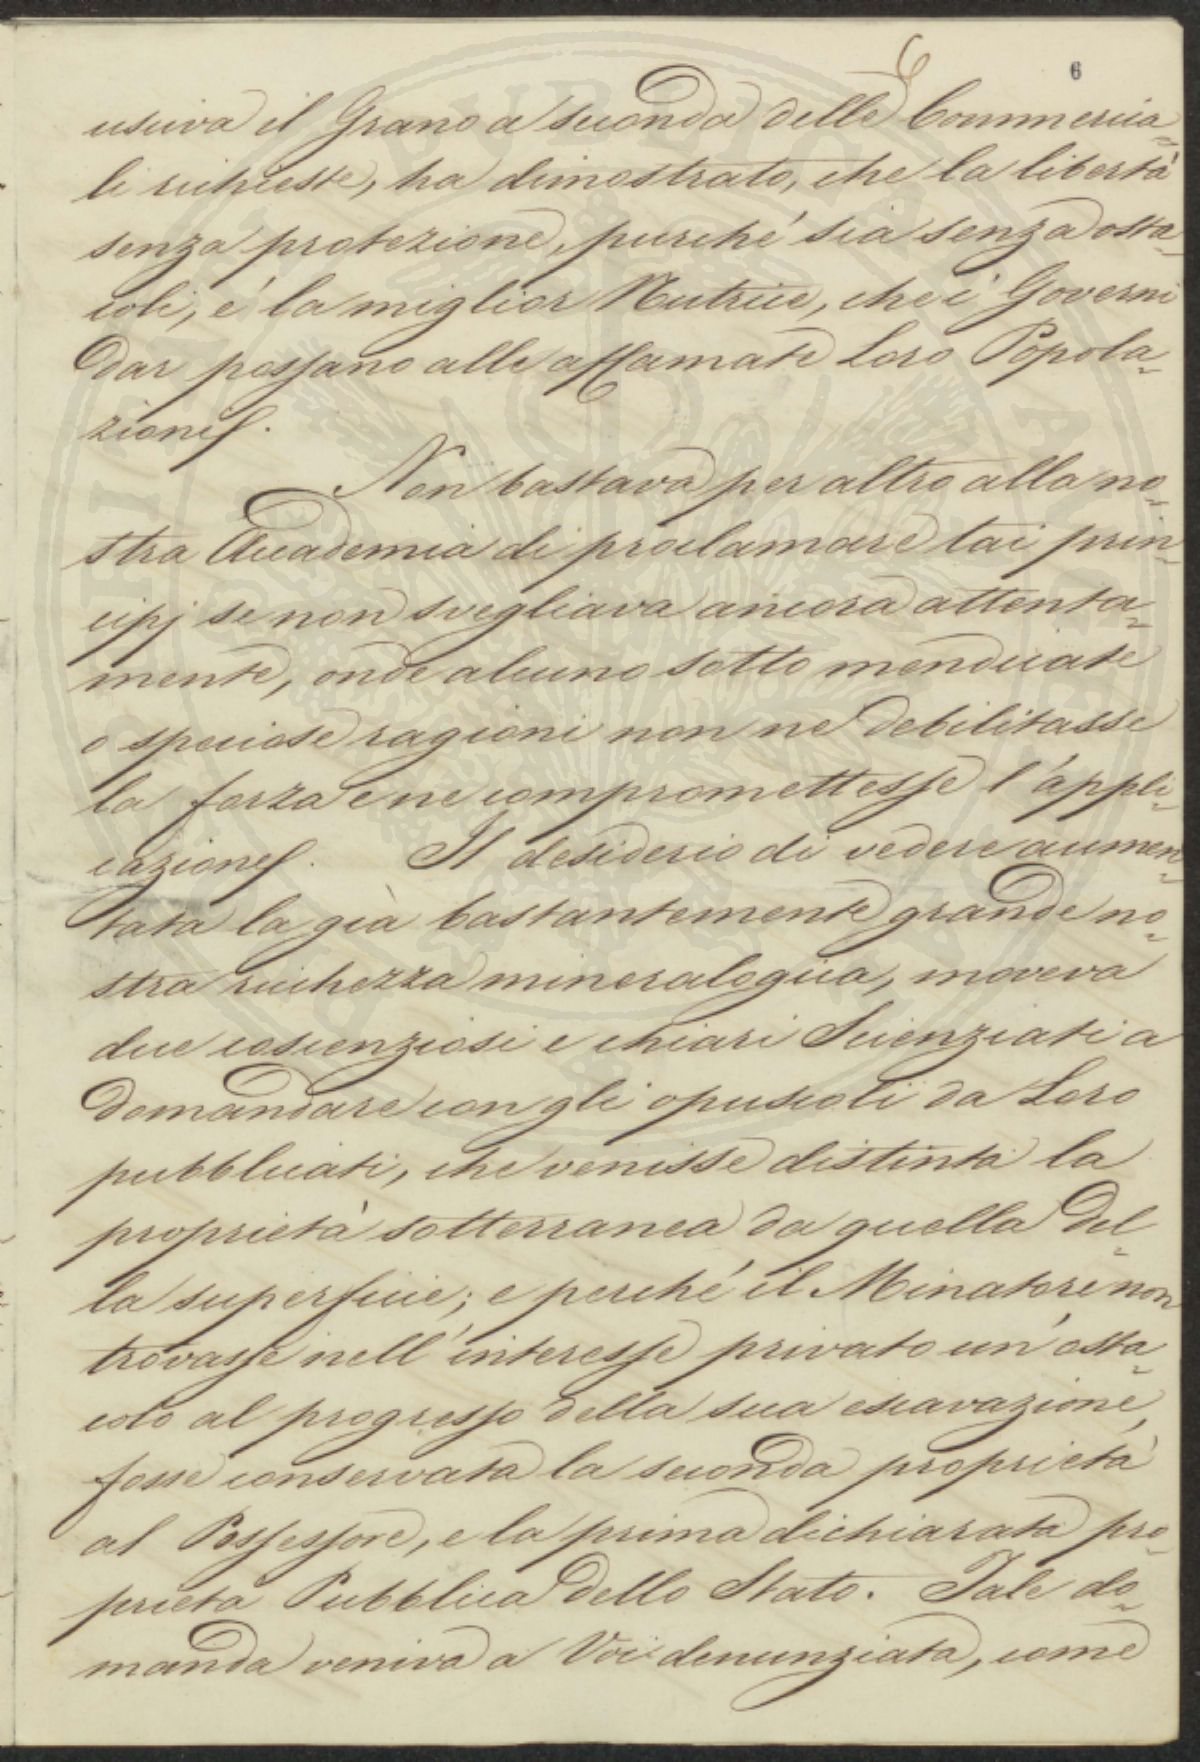 6
6
usciva il Grano a seconda delle Commercia=
li richieste, ha dimostrato, che la libertà
senza protezione, purché sia senza osta=
coli, é la miglior Nutrice, che i Governi
dar possano alle affamate Loro Popola=
zioni.
Non bastava per altro alla no=
stra Accademia di proclamare tai prin=
cipj se non svegliava ancora attenta=
mente, onde alcuno sotto mendicate
o speciose ragioni non ne debilitasse
la forza e ne compromettesse l'appli=
cazione. Il desiderio di vedere aumen=
tata la già bastantemente grande no=
stra ricchezza mineralogica, moveva
due coscenziosi e chiari Scienziati a
domandare con gli opuscoli da Loro
pubblicati, che venisse distinta la
proprietà sotterranea da quella del=
la superficie; e perché il Minatore non
trovasse nell'interesse privato un'osta=
colo al progresso della sua escavazione,
fosse conservata la seconda proprietà
al Possessore, e la prima dichiarata pro=
prieta Pubblica dello Stato. Tale do=
manda veniva a Voi denunziata, come